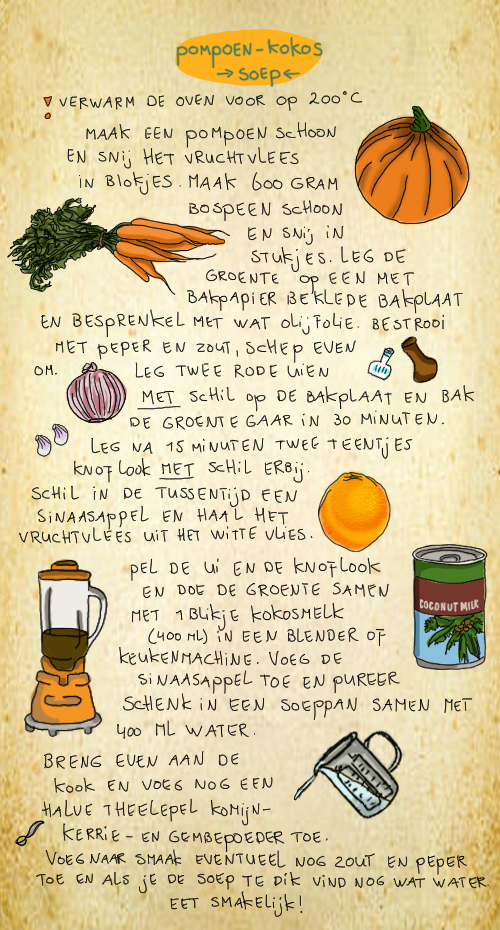 POMPOEN-KOKOS
→ SOEP ←
! VERWARM DE OVEN VOOR OP 200°C
MAAK EEN POMPOEN SCHOON
EN SNIJ HET VRUCHTVLEES
IN BLOKJES. MAAK 600 GRAM
BOSPEEN SCHOON
EN SNIJ IN
STUKJES. LEG DE
GROENTE OP EEN MET
BAKPAPIER BEKLEDE BAKPLAAT
EN BESPRENKEL MET WAT OLIJFOLIE. BESTROOI
MET PEPER EN ZOUT, SCHEP EVEN
OM. LEG TWEE RODE UIEN
MET SCHIL OP DE BAKPLAAT EN BAK
DE GROENTE GAAR IN 30 MINUTEN.
LEG NA 15 MINUTEN TWEE TEENTJES
KNOFLOOK MET SCHIL ERBIJ.
SCHIL IN DE TUSSENTIJD EEN
SINAASAPPEL EN HAAL HET
VRUCHTVLEES UIT HET WITTE VLIES.
PEL DE UI EN DE KNOFLOOK
EN DOE DE GROENTE SAMEN
MET 1 BLIKJE KOKOSMELK
(400 ML) IN EEN BLENDER OF
KEUKENMACHINE. VOEG DE
SINAASAPPEL TOE EN PUREER
SCHENK IN EEN SOEPPAN SAMEN MET
400 ML WATER.
COCONUT MILK
BRENG EVEN AAN DE
KOOK EN VOEG NOG EEN
HALVE THEELEPEL KOMIJN-
KERRIE- EN GEMBEPOEDER TOE.
VOEG NAAR SMAAK EVENTUEEL NOG ZOUT EN PEPER
TOE EN ALS JE DE SOEP TE DIK VIND NOG WAT WATER.
EET SMAKELIJK!